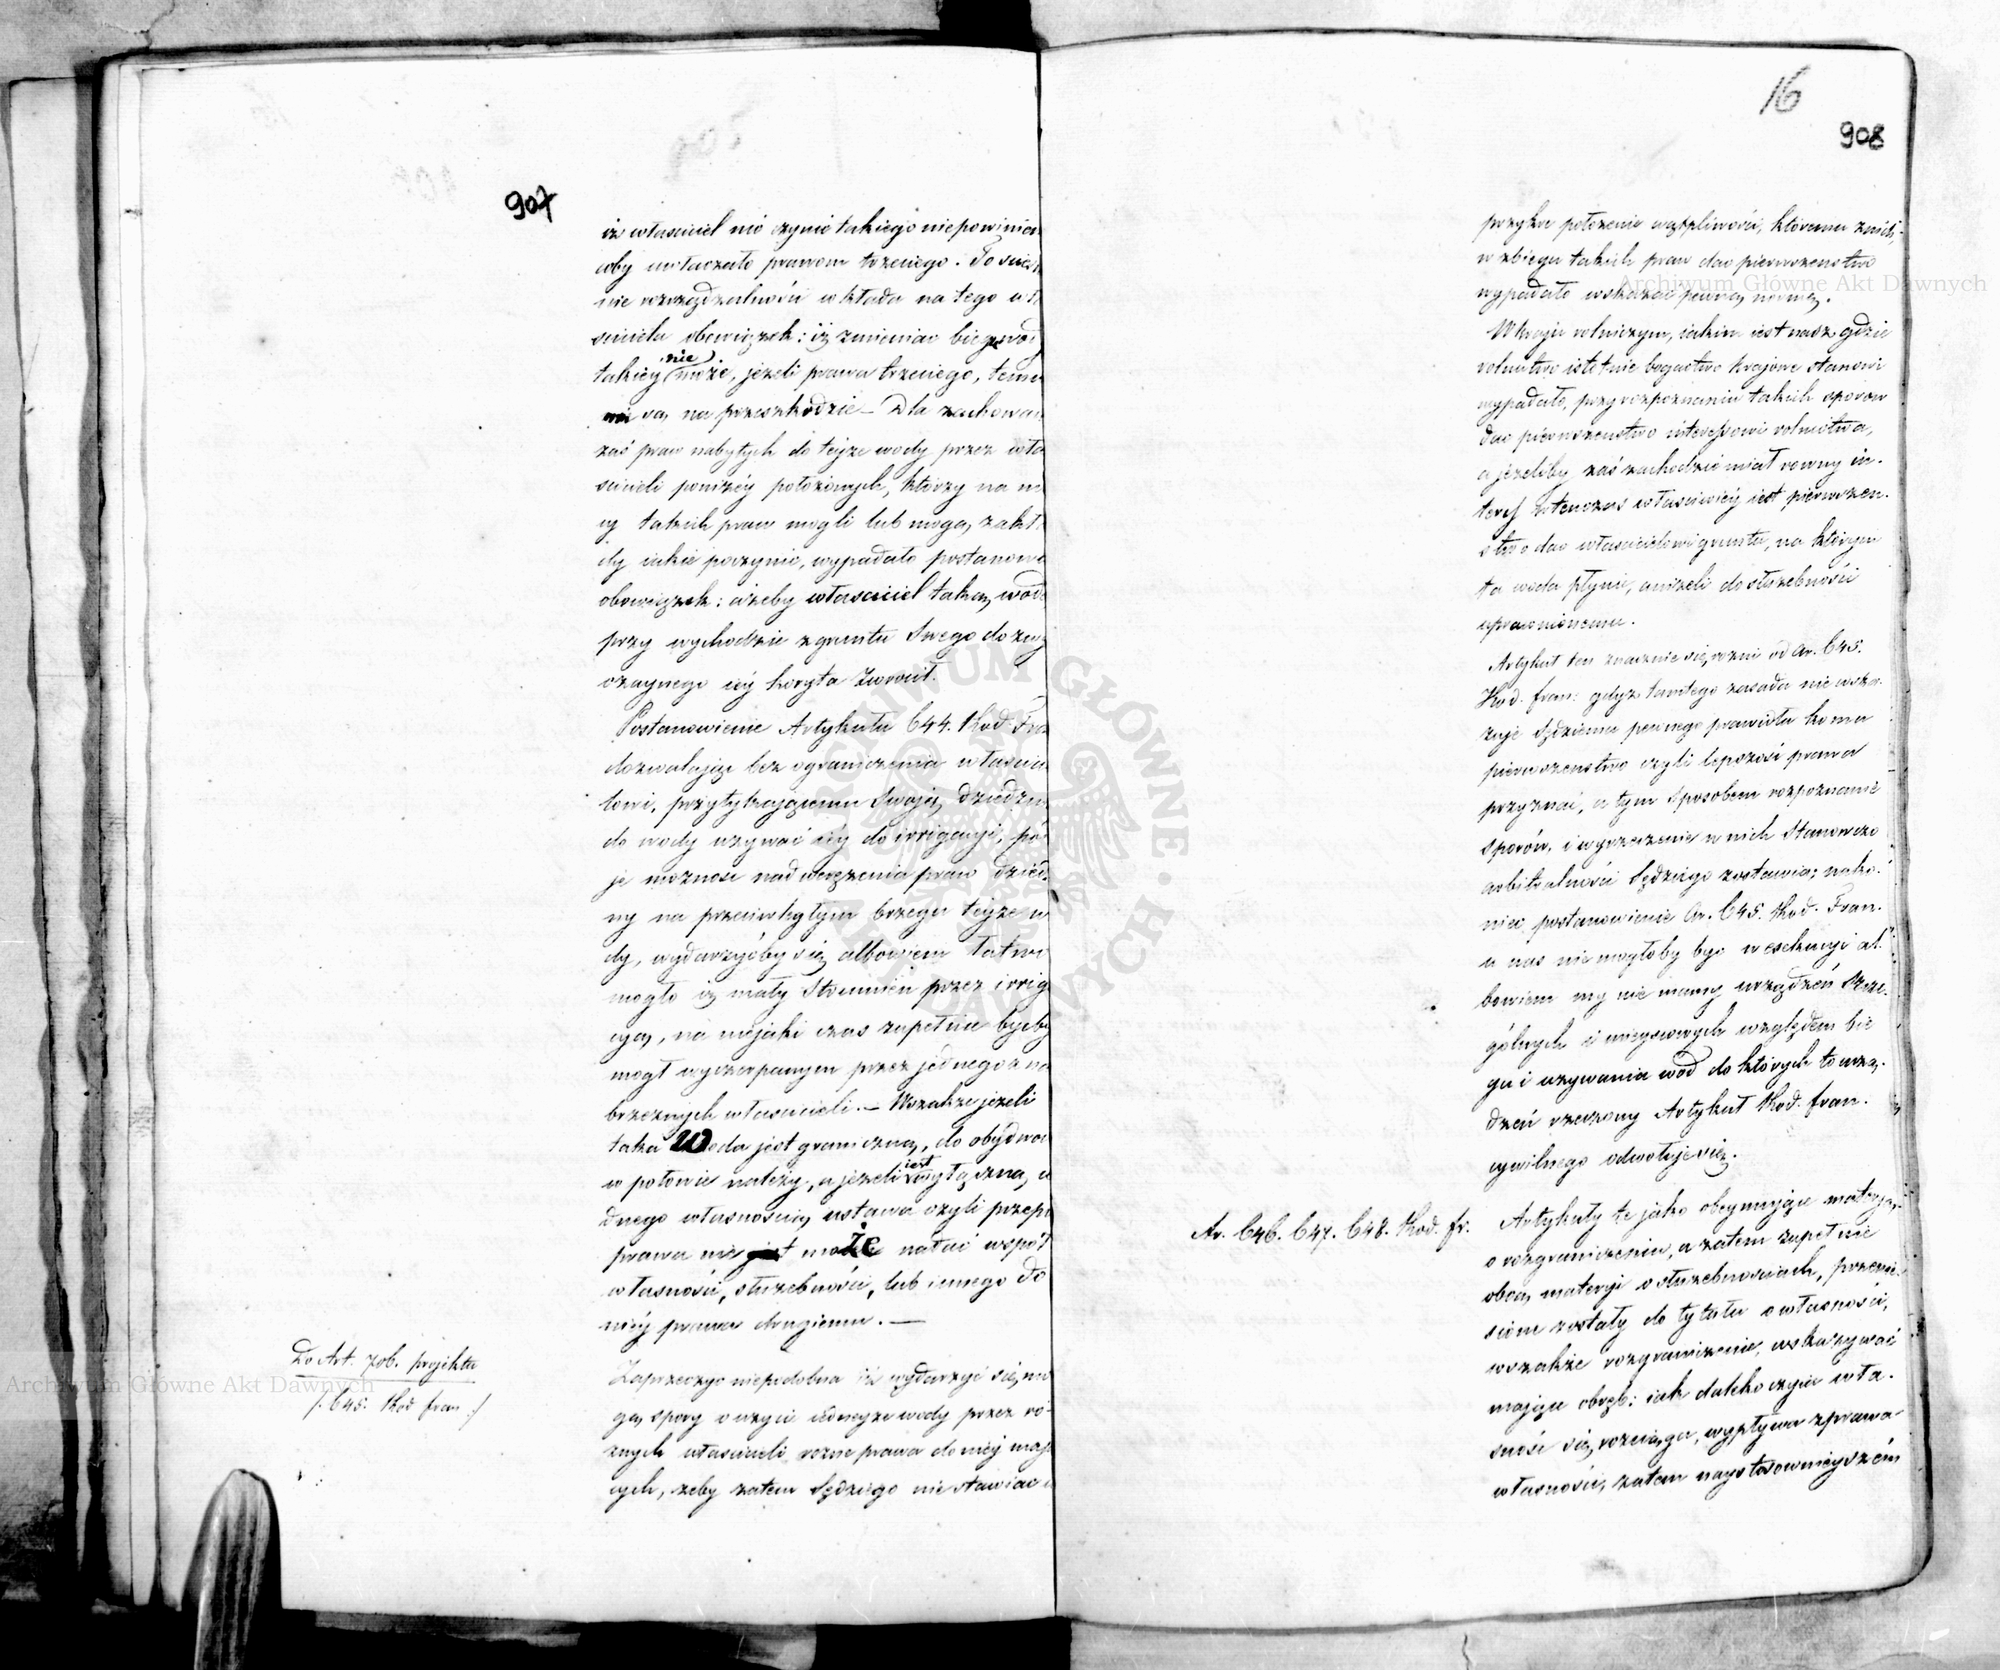 907
iż własciciel nic czynić takiego niepowinien
coby uwłaczało prawom trzeciego. To
nie rozrządzalności wkłada na tego wł
sciciela obowiązek: iż zmieniać biegu wód
takiey nie może, jeżeli prawa trzeciego, temu
są na przeszkodzie – Dla zachowan
zaś praw nabytych do teyże wody przez wła
scicieli poniżéy położonych, którzy na m
cy takich praw mogli lub mogą zakł
dy iakie poczynić, wypadało postanowi
obowiązek: ażeby własciciel taką wod
przy wychodzie z gruntu Swego do zwy
czaynego iéy koryta Zwrócił.
Postanowienie Artykułu 644. Kod. Fra
dozwalając bez ograniczenia własci
lowi, przytykającemu Swoją dziedzin
do wody używać iéy do irrigacyi,
je możność nadweręzenia praw dzied
ny na przeciwległym brzegu teyże w
dy, wydarzyćby się albowiem łatwo
mogło iż mały Strumień przez irrig
cyą, na niejaki czas zupełnie byćby
mogł wyczerpanym przez jednego z na
brzeżnych własicieli. – Wszakże jeżeli
taka Woda jest graniczną, do obydwoc
w połowie należy, a jeżeli iest wyłączną, ie
dnego własnością ustawa czyli przepis
prawa nie może nadać wspoł
własności, służebności, lub innego do
niéy prawa drugiemu. —
Do Art. 706. projektu
/. 645. Kod fran ./
Zaprzeczyć niepodobna iż wydarzyć się mo
gą spory o użycie iedneyże wody przez ró-
żnych własicieli rożne prawa do niéy mają
cych, żeby zatem Sędziego nie stawiać w
16
908
przykre położenie wątpliwości, któremu z nich,
w zbiegu takich praw dać pierwszenstwo
wypadało wskazać pewną normę.
W kraju rolniczym, iakim iest nasz, gdzie
rolnictwo istotnie bogactwo krajowe stanowi
wypadało, przy rozpoznaniu takich sporów
dać pierwszenstwo interessowi rolnictwa,
a jeżeliby zaś zachodzić miał rowny in-
teress wtenczas właściwiéy iest pierwszen-
stwo dać właścicielowi gruntu, na którym
ta woda płynie, aniżeli do służebności
uprawnionemu.
Artykuł ten znacznie się rożni od Ar. 645.
Kod. fran: gdyż tamtego zasada nie wska-
zuje Sędziemu pewnego prawidła komu
pierwszenstwo czyli lepszość prawa
przyznać, a tym Sposobem rozpoznanie
sporów, i wyrzeczenie w nich Stanowczo
arbitralności Sędziego zostawia; nako-
niec postanowienie Ar. 645. Kod. Fran.
u nas nie mogłoby być w exekucyi al-
bowiem my nie mamy urządzeń Szcze-
gólnych i mieyscowych względem bie
gu i używania wód do których to urzą-
dzeń rzeczony Artykuł Kod. fran.
cywilnego odwołuje się.
Ar. 646. 647. 648. Kod. fr.
Artykuły te jako obeymujące materyą
o rozgraniczeniu, a zatem zupełnie
obcą materyi o służebnosciach, przenie-
sione zostały do tytułu o własności,
wszakże rozgraniczenie, wskazywać
mające obręb: iak daleko czyia wła-
sność się rozciąga, wypływa z prawa
własności, zatem naystosownieyszém